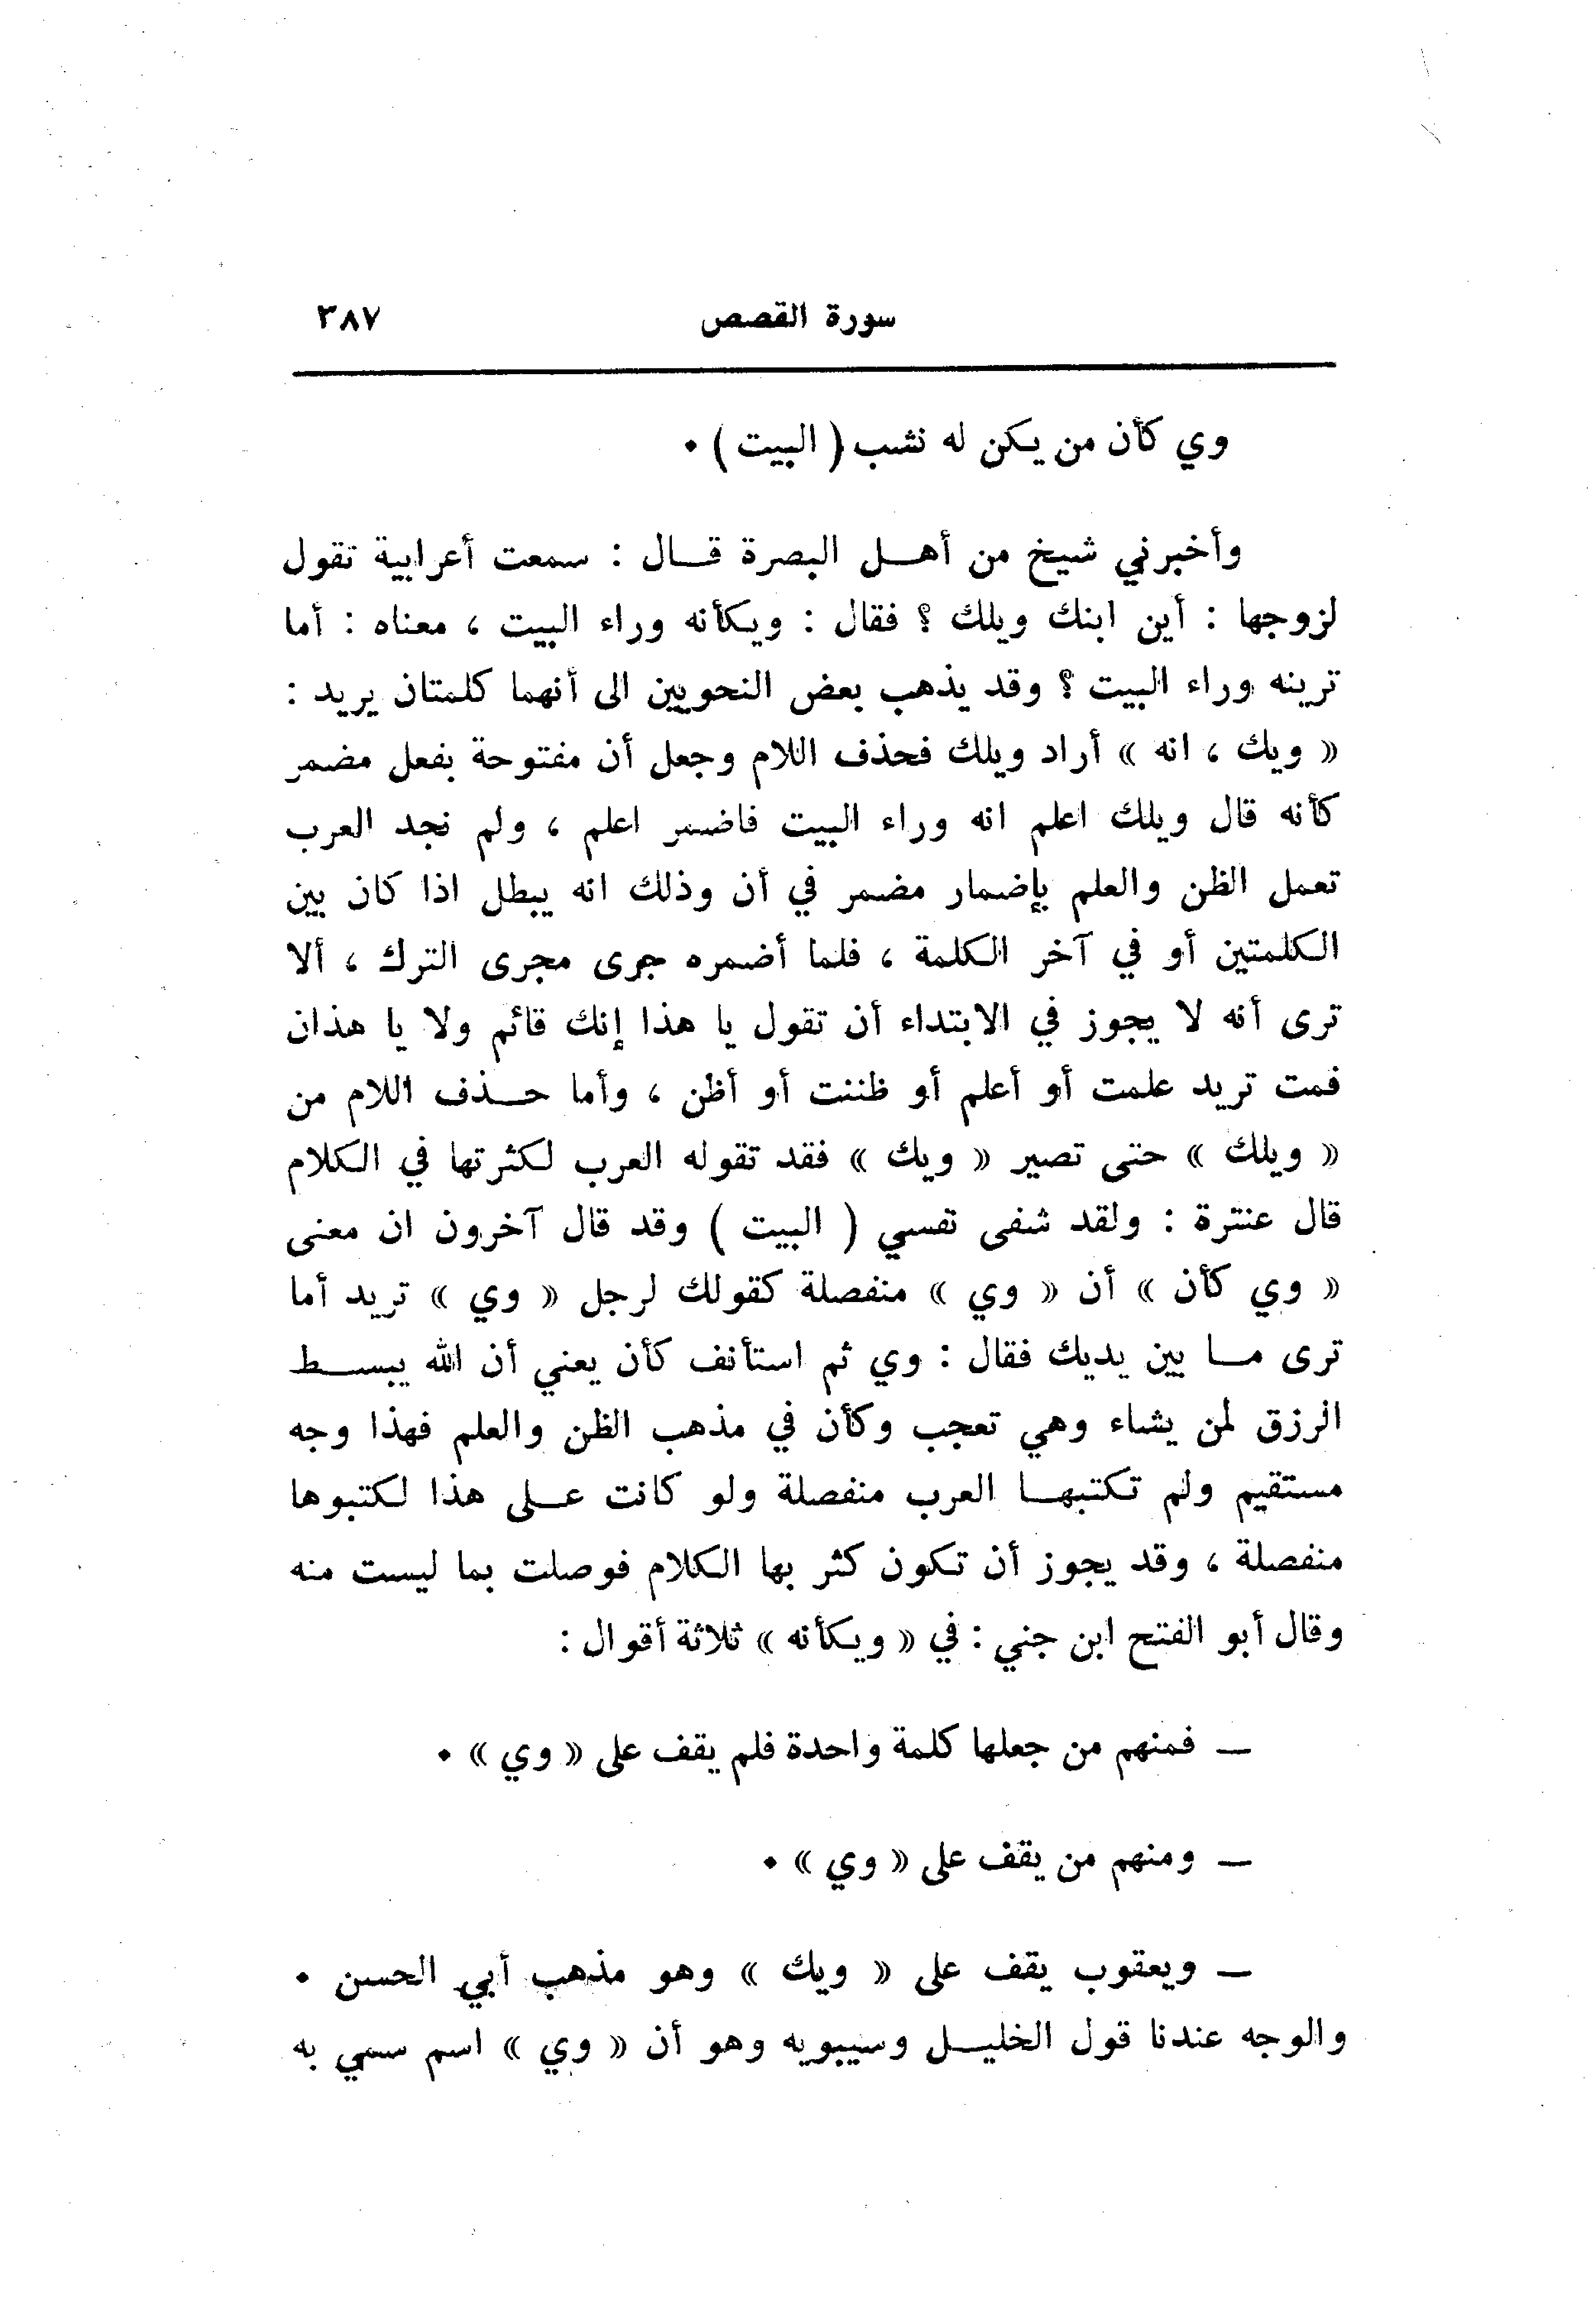 سورة القصص ٣٨٧
وي كأن من يكن له نشب ( البيت ) ٠
وأخبرني شيخ من أهل البصرة قال : سمعت أعرابية تقول
لزوجها : أين ابنك ويلك ؟ فقال : ويكأنه وراء البيت ، معناه : أما
ترينه وراء البيت ؟ وقد يذهب بعض النحويين الى أنهما كلمتان يريد :
« ويك ، انه » أراد ويلك فحذف اللام وجعل أن مفتوحة بفعل مضمر
كأنه قال ويلك اعلم انه وراء البيت فاضمر اعلم ، ولم نجد العرب
تعمل الظن والعلم بإضمار مضمر في أن وذلك انه يبطل اذا كان بين
الكلمتين أو في آخر الكلمة ، فلما أضمره جرى مجرى الترك ، ألا
ترى أنه لا يجوز في الابتداء أن تقول يا هذا إنك قائم ولا يا هذان
قمت تريد علمت أو أعلم أو ظننت أو أظن ، وأما حذف اللام من
« ويلك » حتى تصير « ويك » فقد تقوله العرب لكثرتها في الكلام
قال عنترة : ولقد شفى نفسي ( البيت ) وقد قال آخرون ان معنى
« وي كأن » أن « وي » منفصلة كقولك لرجل « وي » تريد أما
ترى ما بين يديك فقال : وي ثم استأنف كأن يعني أن الله يبسط
الرزق لمن يشاء وهي تعجب وكأن في مذهب الظن والعلم فهذا وجه
مستقيم ولم تكتبها العرب منفصلة ولو كانت على هذا لكتبوها
منفصلة ، وقد يجوز أن تكون كثر بها الكلام فوصلت بما ليست منه
وقال أبو الفتح ابن جني : في « ويكأنه » ثلاثة أقوال :
— فمنهم من جعلها كلمة واحدة فلم يقف على « وي » ٠
— ومنهم من يقف على « وي » ٠
— ويعقوب يقف على « ويك » وهو مذهب أبي الحسن ٠
والوجه عندنا قول الخليل وسيبويه وهو أن « وي » اسم سمي به